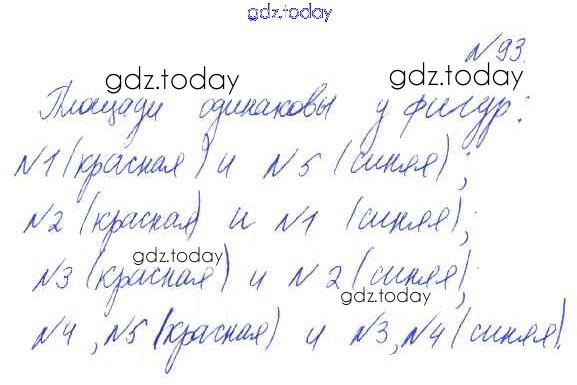 gdz.today
№93.
gdz.today gdz.today
Площади одинаковы у фигур:
№1 (красная) и №5 (синяя);
№2 (красная) и №1 (синяя);
gdz.today
№3 (красная) и №2 (синяя);
gdz.today
№4, №5 (красная) и №3, №4 (синяя).